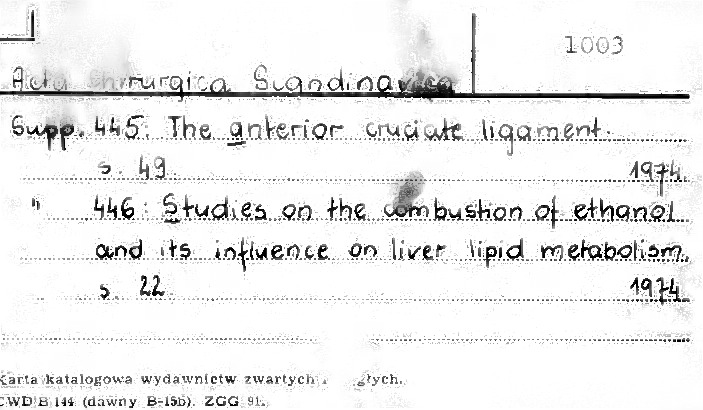 1003
Acta Chirurgica Scandinavica
Supp. 445. The anterior cruciate ligament.
s. 49 1974
" 446. Studies on the combustion of ethanol
and its influence on liver lipid metabolism.
s. 22 1974
Karta katalogowa wydawnictw zwartych
CWD B-144 (dawny B-15b). ZGG 91.